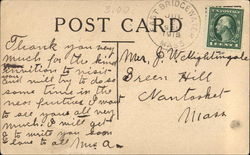 3.00
POST CARD
BRIDGEWATER
1915
Thank you very
much for the kind
invitation to visit
and will try to do so
some time in the
near future. I want
to see you all very
much. I will get
to write you soon
Love to all M. A.
Mrs. J. W. Nightingale
Green Hill
Nantucket
Mass